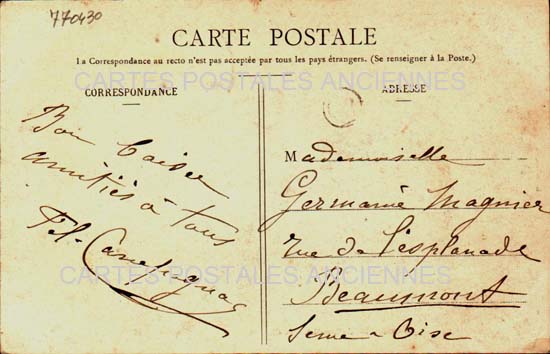 770430
CARTE POSTALE
La Correspondance au recto n'est pas acceptée par tous les pays étrangers. (Se renseigner à la Poste.)
CARTES POSTALES ANCIENNES
CORRESPONDANCE
ADRESSE
Bon Baiser
amitiés à tous
Mademoiselle
Germaine Magnier
rue de l'esplanade
CARTES POSTALES ANCIENNES
Beaumont
Seine & Oise